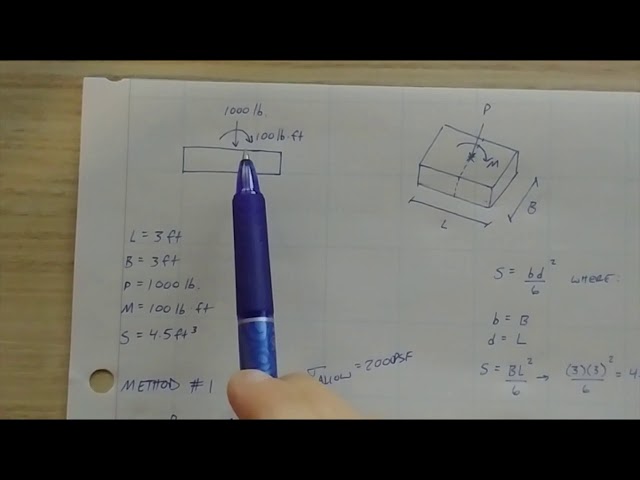 1000 lb.
100 lb·ft
P
M
L
B
L = 3 ft
B = 3 ft
P = 1000 lb.
M = 100 lb·ft
S = 4.5 ft³
S = bd²/6 WHERE:
b = B
d = L
S = BL²/6 → (3)(3)²/6 = 4.
METHOD #1
σALLOW = 2000 PSF